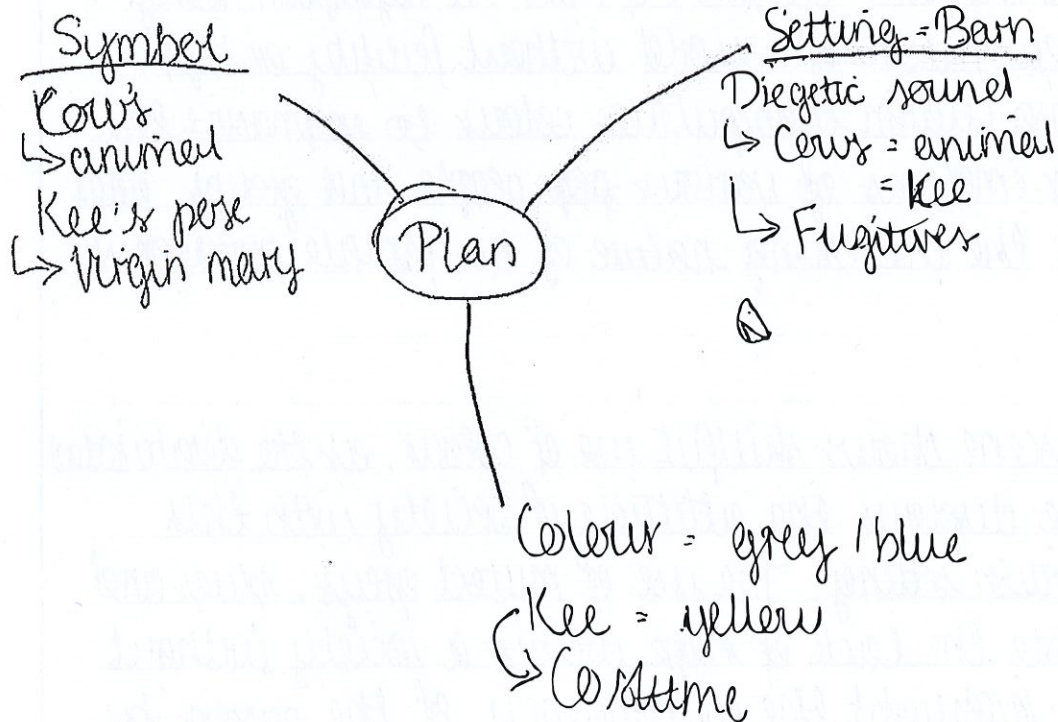 Symbol
Cows
↳ animal
Kee's pose
↳ Virgin mary
Setting = Barn
Diegetic sound
↳ Cows = animal
= Kee
↳ Fugitives
Plan
Colour = grey / blue
Kee = yellow
↳ Costume